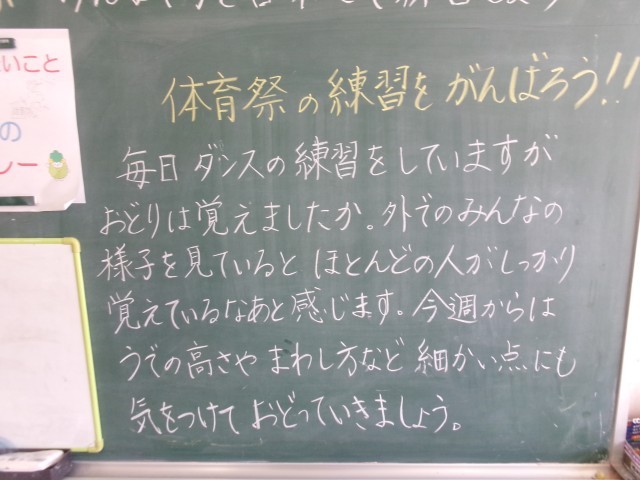 いこと
の
レー
体育祭の練習をがんばろう!!
毎日ダンスの練習をしていますが
おどりは覚えましたか。外でのみんなの
様子を見ているとほとんどの人がしっかり
覚えているなあと感じます。今週からは
うでの高さやまわし方など細かい点にも
気をつけておどっていきましょう。